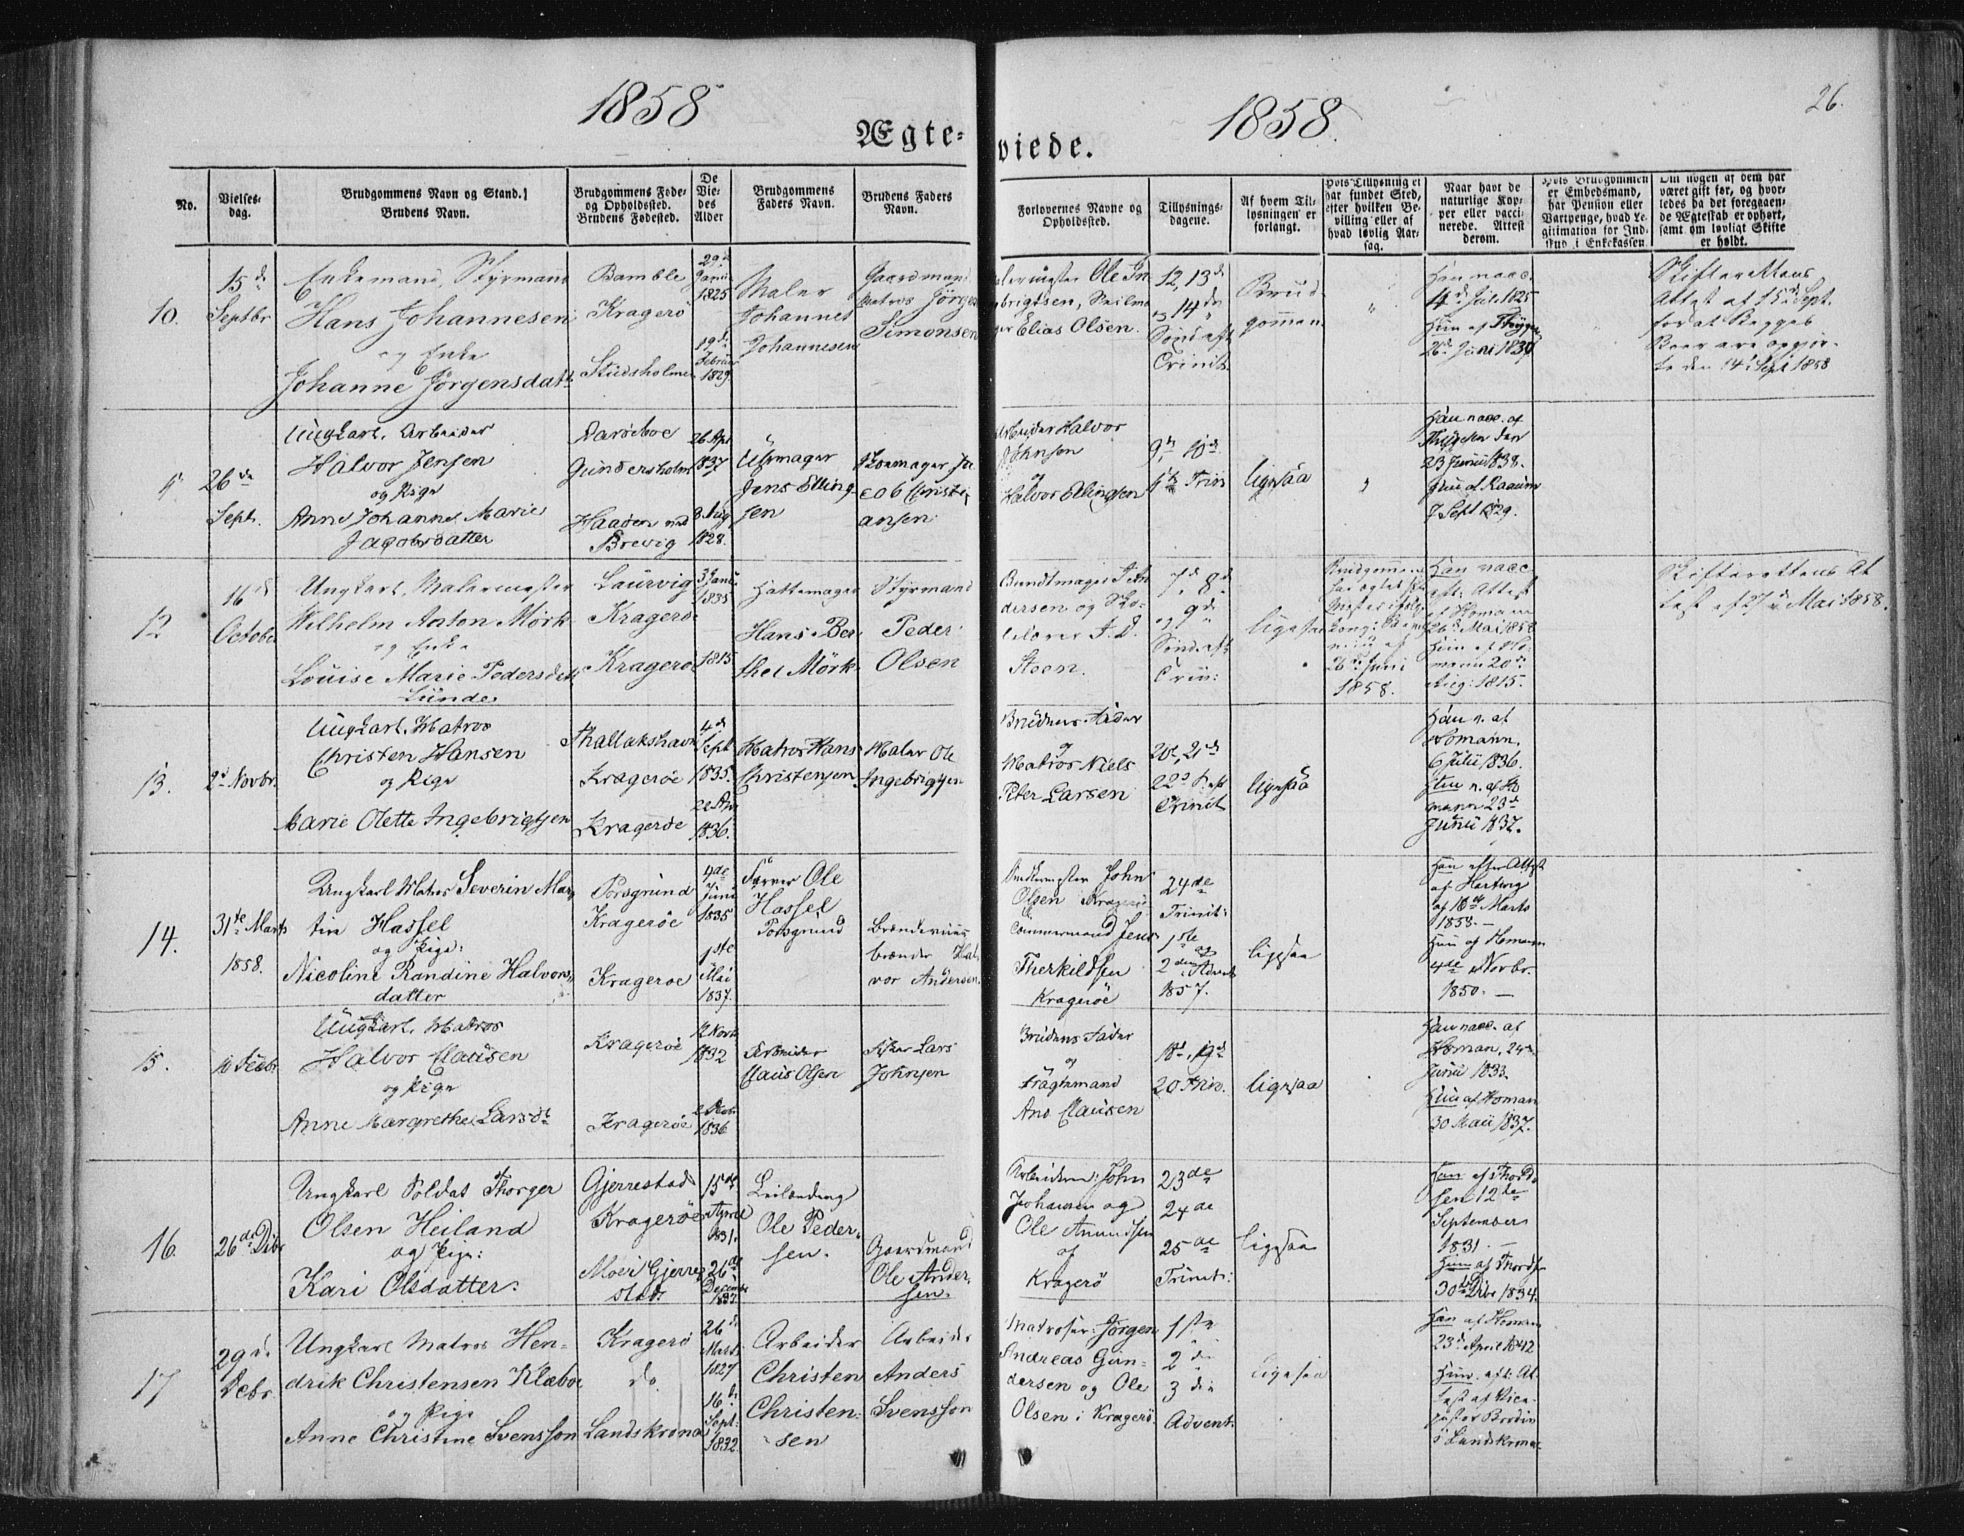 1858
1858.
26.
Ægte-
viede.
No.
Vielses-
dag.
Brudgommens Navn og Stand.
Brudens Navn.
Brudgommens Føde-
og Opholdssted.
Brudens Fødested.
De
Vie-
des
Alder
Brudgommens
Faders Navn.
Brudens Faders
Navn.
Forlovernes Navne og
Opholdssted.
Tillysnings-
dagene.
Af hvem Til-
lysningen er
forlangt.
Hvis Tillysning ei
har fundet Sted,
efter hvilken Be-
villing eller af
hvad lovlig Aar-
sag.
Naar havt de
naturlige Kop-
per eller vacci-
nerede. Attest
derom.
Hvis Brudgommen
er Embedsmand,
har Pension eller
Vartpenge, hvad Le-
gitimation for Ind-
skud i Enkekassen.
Om nogen af dem har
været gift før, og hvor-
ledes da det foregaaen-
de Ægteskab er ophørt,
samt om lovligt Skifte
er holdt.
10.
15de
Septbr
Enkemand, Styrmand
Hans Johannesen
og Enke
Johanne Jörgensdatt
Bamble
Kragerö
Studsholmen
29de
Janu
1825
19de
Februar
1829.
Maler
Johannes
Johannesen
Gaardmand
Matros Jörgen
Simonsen
Ole In
gbrigtsen, Seilma
ger Elias Olsen.
12, 13de
og 14de
Sönd. eft.
Trinit.
Brud-
gommen.
"
Han nacc.
4de Juli 1825
Hun af Thygesen
26de Juni 1839
Skifterettens
Attest af 15de Sept.
for at Begges
Boer ere opgjor-
te den 14de Sept 1858
26de
Sept.
Ungkarl, Arbeider
Halvor Jensen
og Pige
Anne Johanne Marie
Jacobsdatter
Gundersholm
Haaöen ved
Brevig
26 Apr
1837
8 Aug
1828.
Uhrmager
Jens Elling
sen
Skomager Ja
cob Christi
ansen
Arbeider Halvor
Johnsen
og
Halvor Ellingsen
9de, 10de
Trin
ligesaa
"
Han nacc. af
Thygesen den
23 Junii 1838.
Hun af Raaum
7 Sept 1829.
12
16de
October
Ungkarl, Malermester
Wilhelm Anton Mörk
og Enke
Louise Marie Pedersdatt
Lunde
Laurvig
Kragerö
Kragerö
3 Janu
1835
1815
Hattemager
Hans Ber
thel Mörk
Styrmand
Peder
Olsen
Bundtmager T. An
dersen og
Steen.
7de, 8de
og 9de
Sönd. eft.
Trin:
ligesaa
26de Juni
1858.
Han nacc.
eft. Attest
af Homann
26de Mai 1858
Hun af Ho-
mann 20de
Aug: 1815.
Skifterettens At
test af 27de Mai 1858.
13.
2de Novbr.
Ungkarl, Matros
Christen Hansen
og Pige
Marie Olette Ingebrigtsen
Thallakshavn
Kragerøe
Kragerøe
4de
Sept
1835.
1836.
Matros Hans
Christensen
Maler Ole
Ingebrigtsen
Brudens Fader
og
Matros Niels
Peter Larsen
20de, 21de
22de S. eft
Trinit
ligesaa
Han n. af
Homann.
6 Julii 1836.
Hun n. af Ho
mann 23de
Junii 1837.
14.
31te Marts
1858.
Ungkarl Matros Severin Mar
tin Hassel
og Pige:
Nicoline Randine Halvors
datter
Porsgrund
Kragerøe
Kragerøe
4de
Juni
1835
1ste
Mai
1837.
Farver Ole
Hassel
Porsgrund
Brændeviins
brænder Hal
vor Andersen.
John
Olsen Kragerö
Tømmermand Jens
Therkildsen
Kragerøe
24de
Trinit:
1ste og
2den i Advent
1857.
ligesaa
Han efter Attest
af Hartwig
af 10de Marts
1858.—
Hun af Homann
4de Novbr.
1850.—
15.
10 Decbr
Ungkarl, Matros
Halvor Clausen
og Pige
Anne Margrethe Larsdt
Kragerøe
Kragerøe
12 Novbr
1832
1836
Arbeider
Claus Olsen
Fisker Lars
Johnsen
Brudens Fader
og
Fragtemand
Ano Clausen
18de, 19de
20 Trin.
ligesaa
Han nacc. af
Homan, 24de
Junii 1833.
Hun af Homan
30 Maii 1837.
16.
26de Dcbr
Ungkarl Soldat Thorger
Olsen Heiland
og Pige:
Kari Olsdatter.
Gjerrestad
Kragerøe
Moei Gjerre
stad.
15de
April
1831.
26de
December
1827.
Leilænding
Ole Peder-
sen.
Gaardmand
Ole Ander-
sen.
Arbeiderne: John
Johansen og
Ole Amundsen
af
Kragerö
23de
24de
25de
Trinit:
ligesaa
Han af Thord
sen 12de
September
1831.—
Hun af Thordsen
30te Dcbr 1834.
17
29de
Decbr.
Ungkarl Matros Hen-
drik Christensen Klæboe
og Pige
Anne Christine Svensson
Kragerö
do.
Landskrona
26de
Mart.
1827
16de
Sept.
1832.
Arbeider
Christen
Christen-
sen
Arbeider
Anders
Svensson
Matroser: Jörgen
Andreas Gun-
dersen og Ole
Olsen i Kragerö.
1ste
2de
3die
Advent.
ligesaa
Han af Homan
23de April 1842
Hun. eft. At
test af Vice
pastor Brodin
i Landskrona